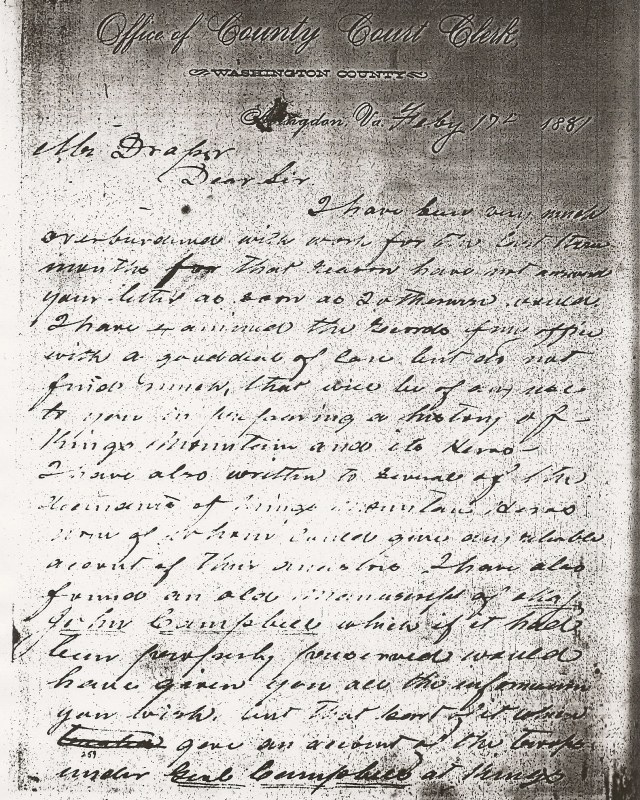 Office of County Court Clerk,
WASHINGTON COUNTY
Abingdon, Va. Feby 17th 1881
Mr Draper
Dear Sir
I have been very much
overburdened with work for the last three
months for that reason have not answered
your letter as soon as I otherwise would.
I have examined the records of my office
with a good deal of care but do not
find much, that will be of any use
to you in preparing a history of
Kings Mountain and its Heros
I have also written to several of the
decendants of Kings Mountain Heros
non of whom could give any reliable
acount of their ancestors I have also
found an old manuscript of
John Campbell which if it had
been properly preserved would
have given you all the information
you wish. but that part of it where
gave an account of the troops
259
under Genl Campbell at Kings